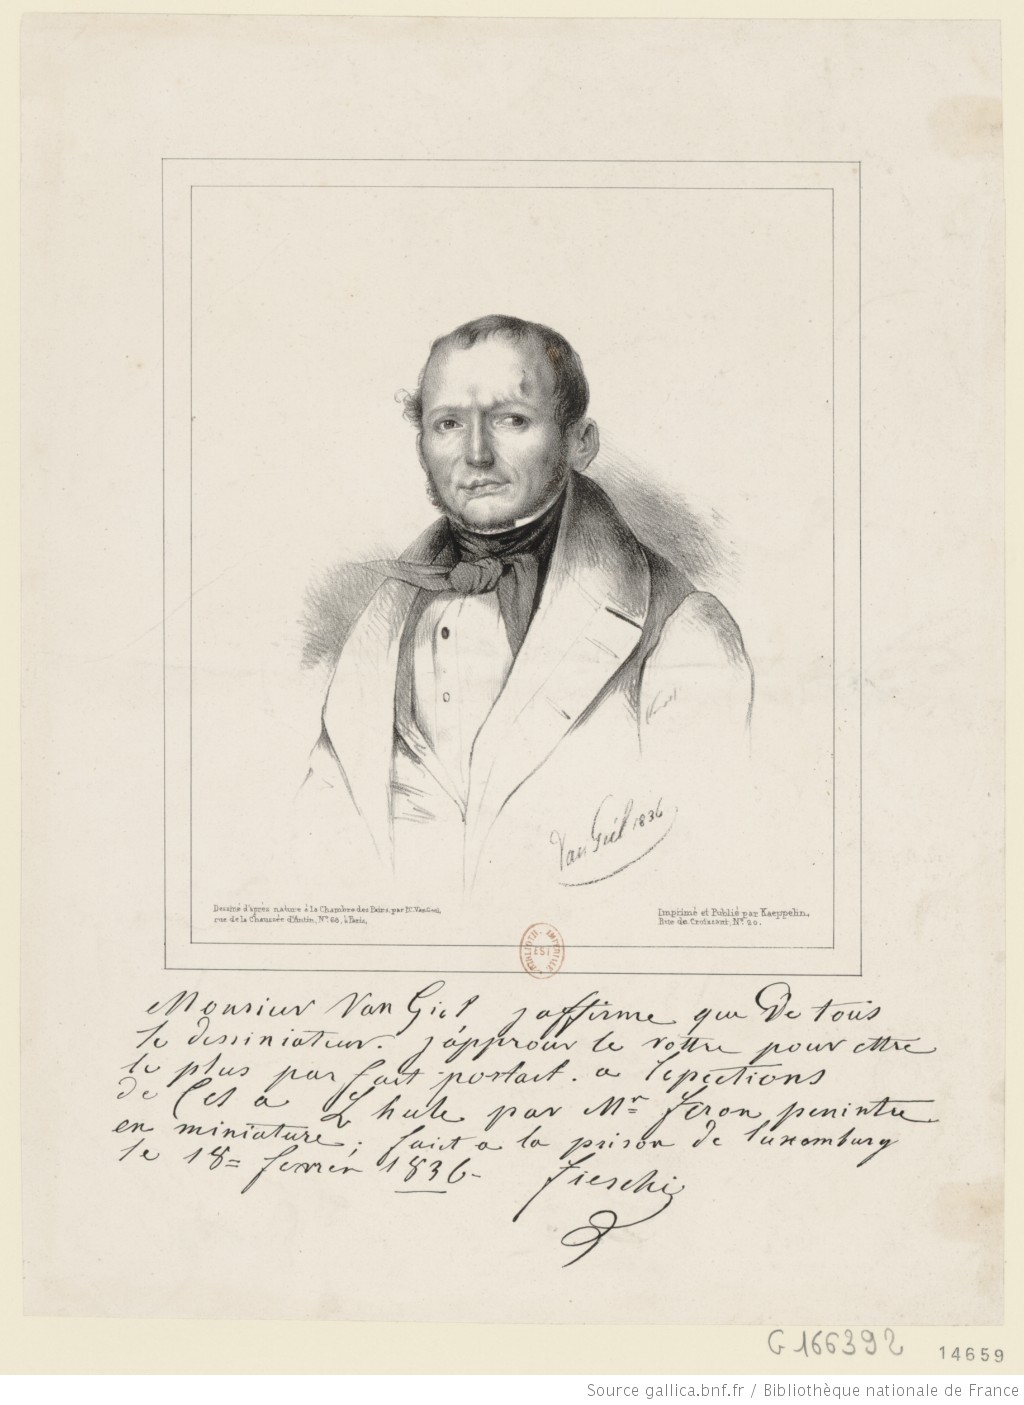 Van Giél 1836
Dessiné d'après nature à la Chambre des Pairs, par
rue de la Chaussée d'Antin, No. 60, à Paris.
Imprimé et Publié par Kaeppelin,
Rue du Croissant, No. 20.
Monsieur Van Giel jaffirme que De tous
le dessiniateur. j'approuv le vottre pour ettre
le plus par fait portait. a lepections
de Cel a L hule par Mr Feron penintre
en miniature; fait a la prison de luxemburg
le 18= fevrier 1836- Fieschi
G 166392
14659
Source gallica.bnf.fr / Bibliothèque nationale de France